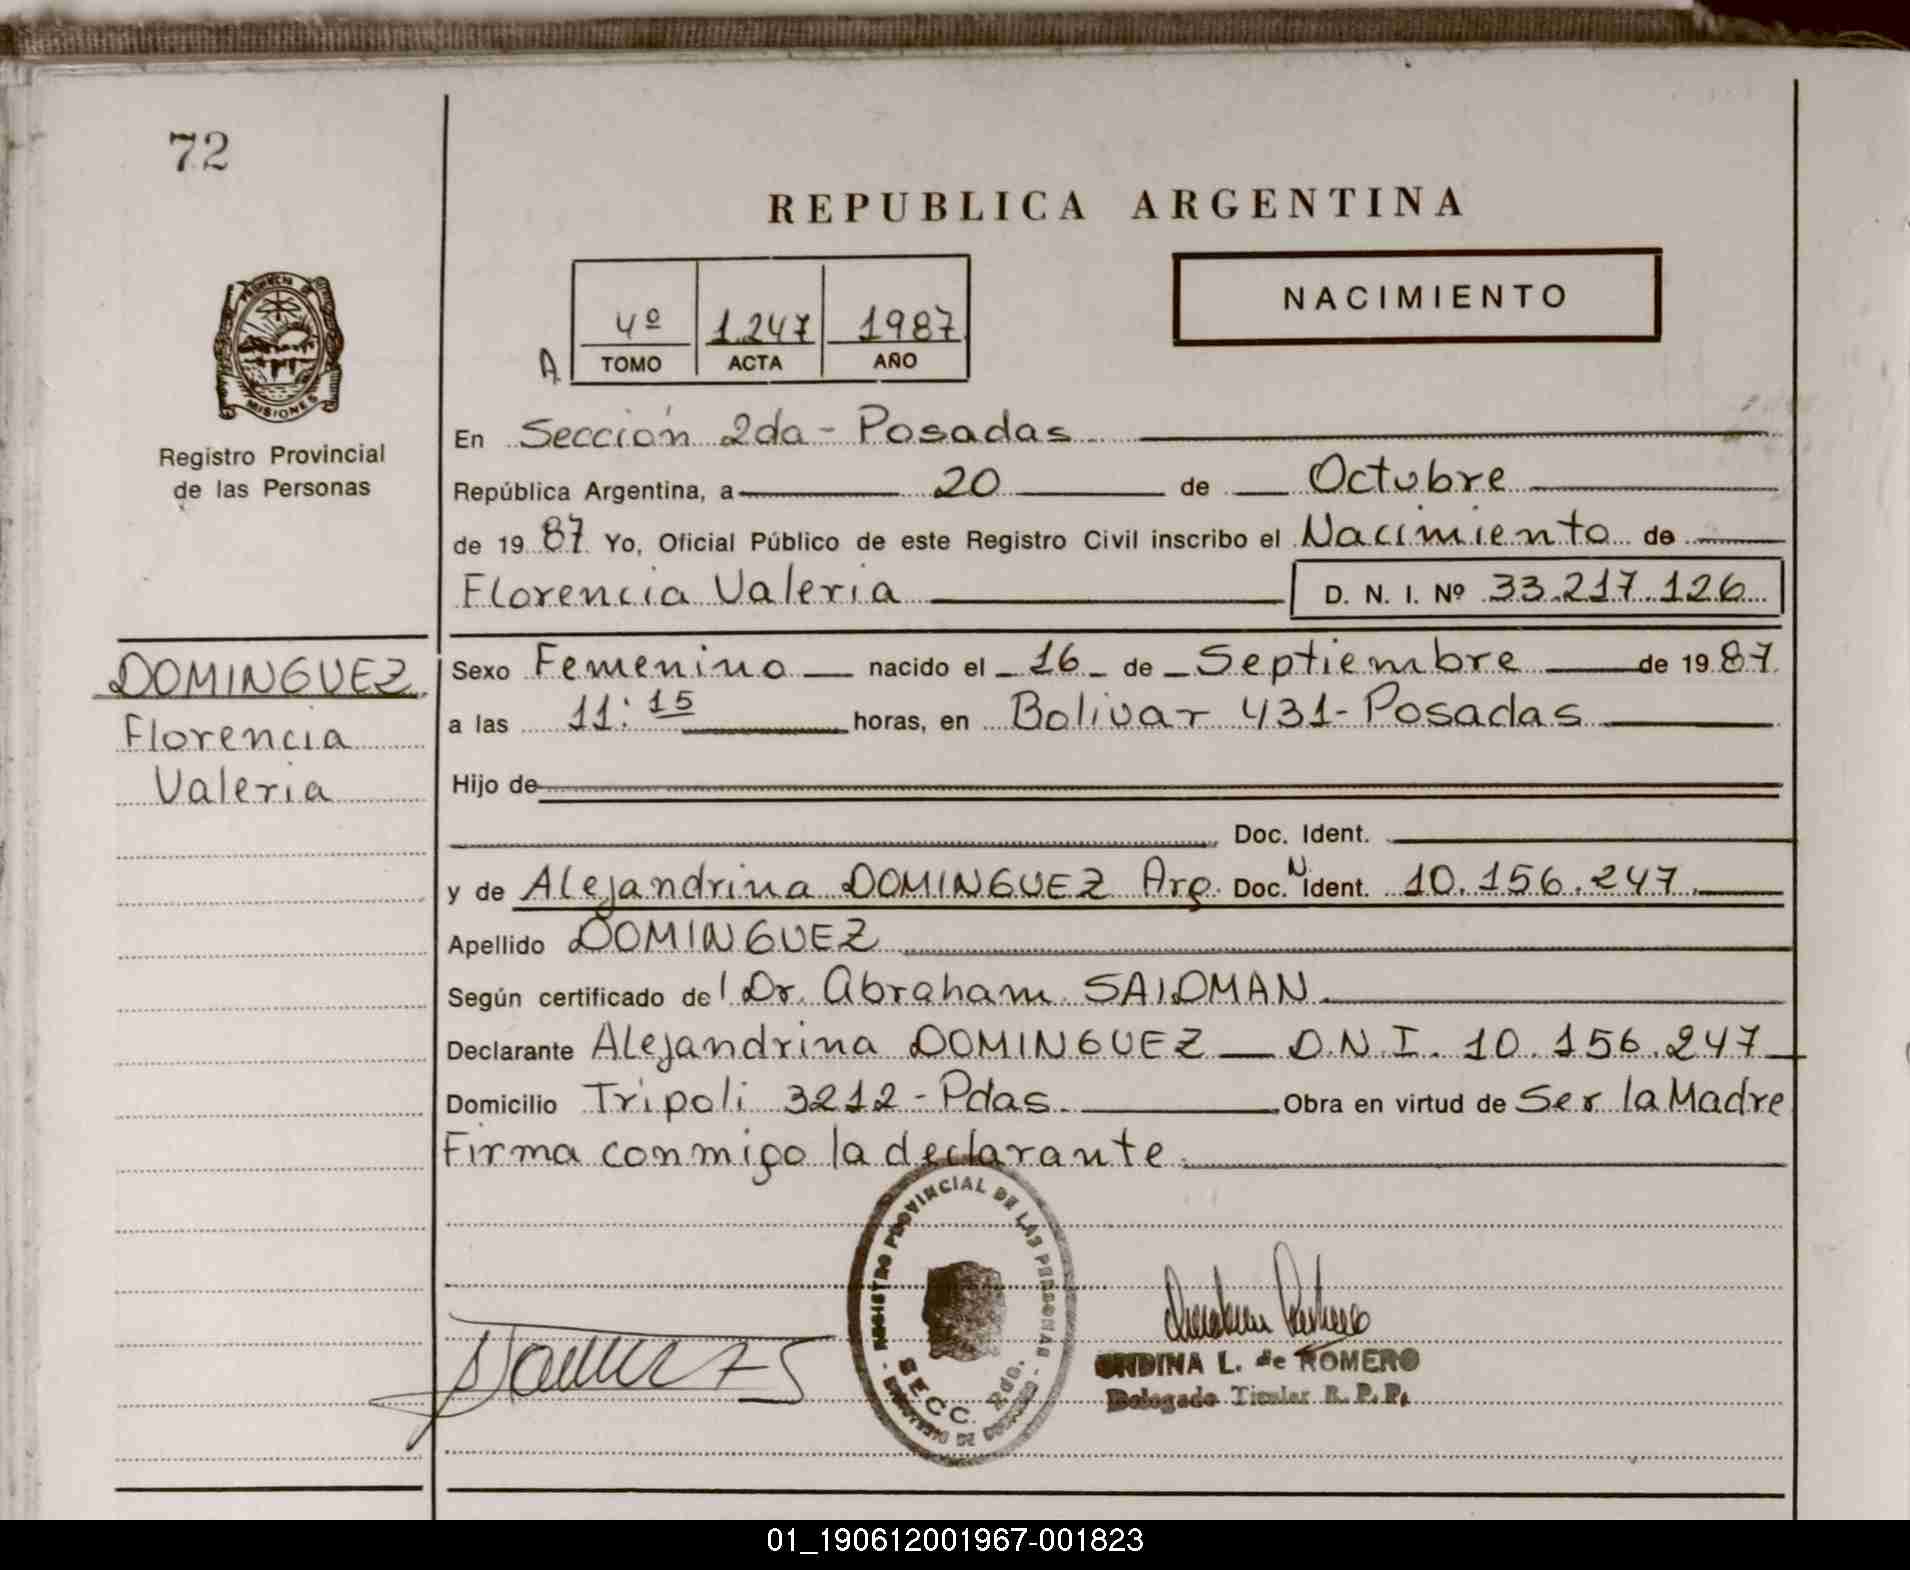 72
REPUBLICA ARGENTINA
NACIMIENTO
A
4º 1.247 1987
TOMO ACTA AÑO
PROVINCIA DE
MISIONES
Registro Provincial
de las Personas
En Sección 2da - Posadas
República Argentina, a 20 de Octubre
de 19 87 Yo, Oficial Público de este Registro Civil inscribo el Nacimiento de
Florencia Valeria D. N. I. Nº 33.217.126
DOMINGUEZ
Florencia
Valeria
Sexo Femenino nacido el 16 de Septiembre de 19 87
a las 11:15 horas, en Bolivar 431 - Posadas
Hijo de
Doc. Ident.
y de Alejandrina DOMINGUEZ Arg. Doc. N Ident. 10.156.247
Apellido DOMINGUEZ
Según certificado del Dr. Abraham SAIDMAN
Declarante Alejandrina DOMINGUEZ D.N.I. 10.156.247
Domicilio Tripoli 3212 - Pdas. Obra en virtud de Ser la Madre
Firma conmigo la declarante
REGISTRO PROVINCIAL DE LAS PERSONAS
SECC. 2da.
ONDINA L. de ROMERO
Delegado Titular R. P. P.
01_190612001967-001823